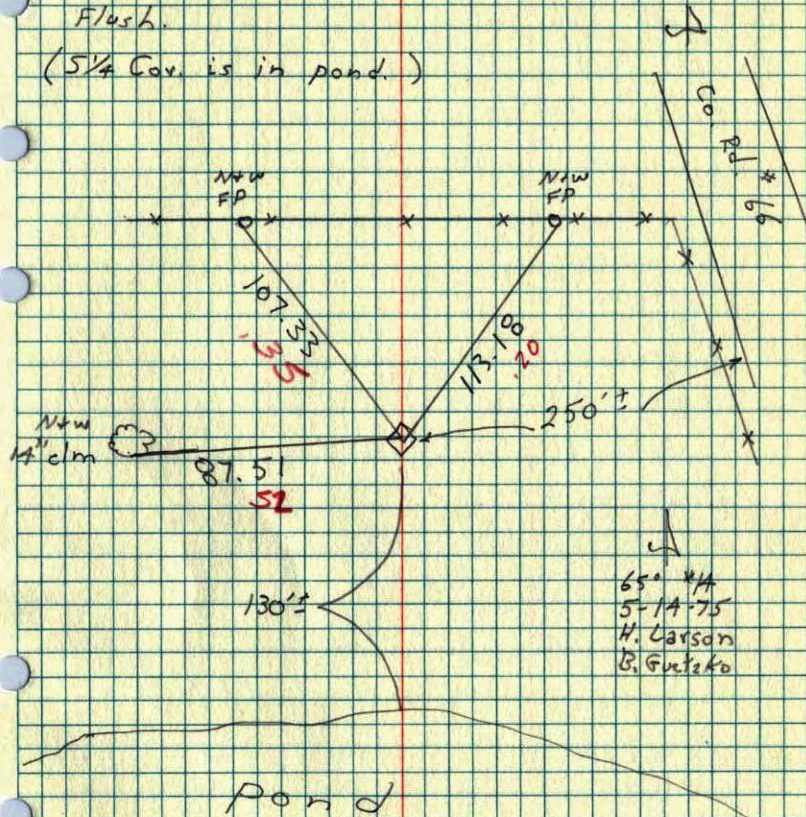 Flush.
(S 1/4 Cor. is in pond.)
Co. Rd #66
N+W
FP
N+W
FP
107.33
.35
113.18
.20
250'±
N+W
14" elm
87.51
52
130'±
65° #14
5-14-75
H. Larson
B. Guetzko
Pond